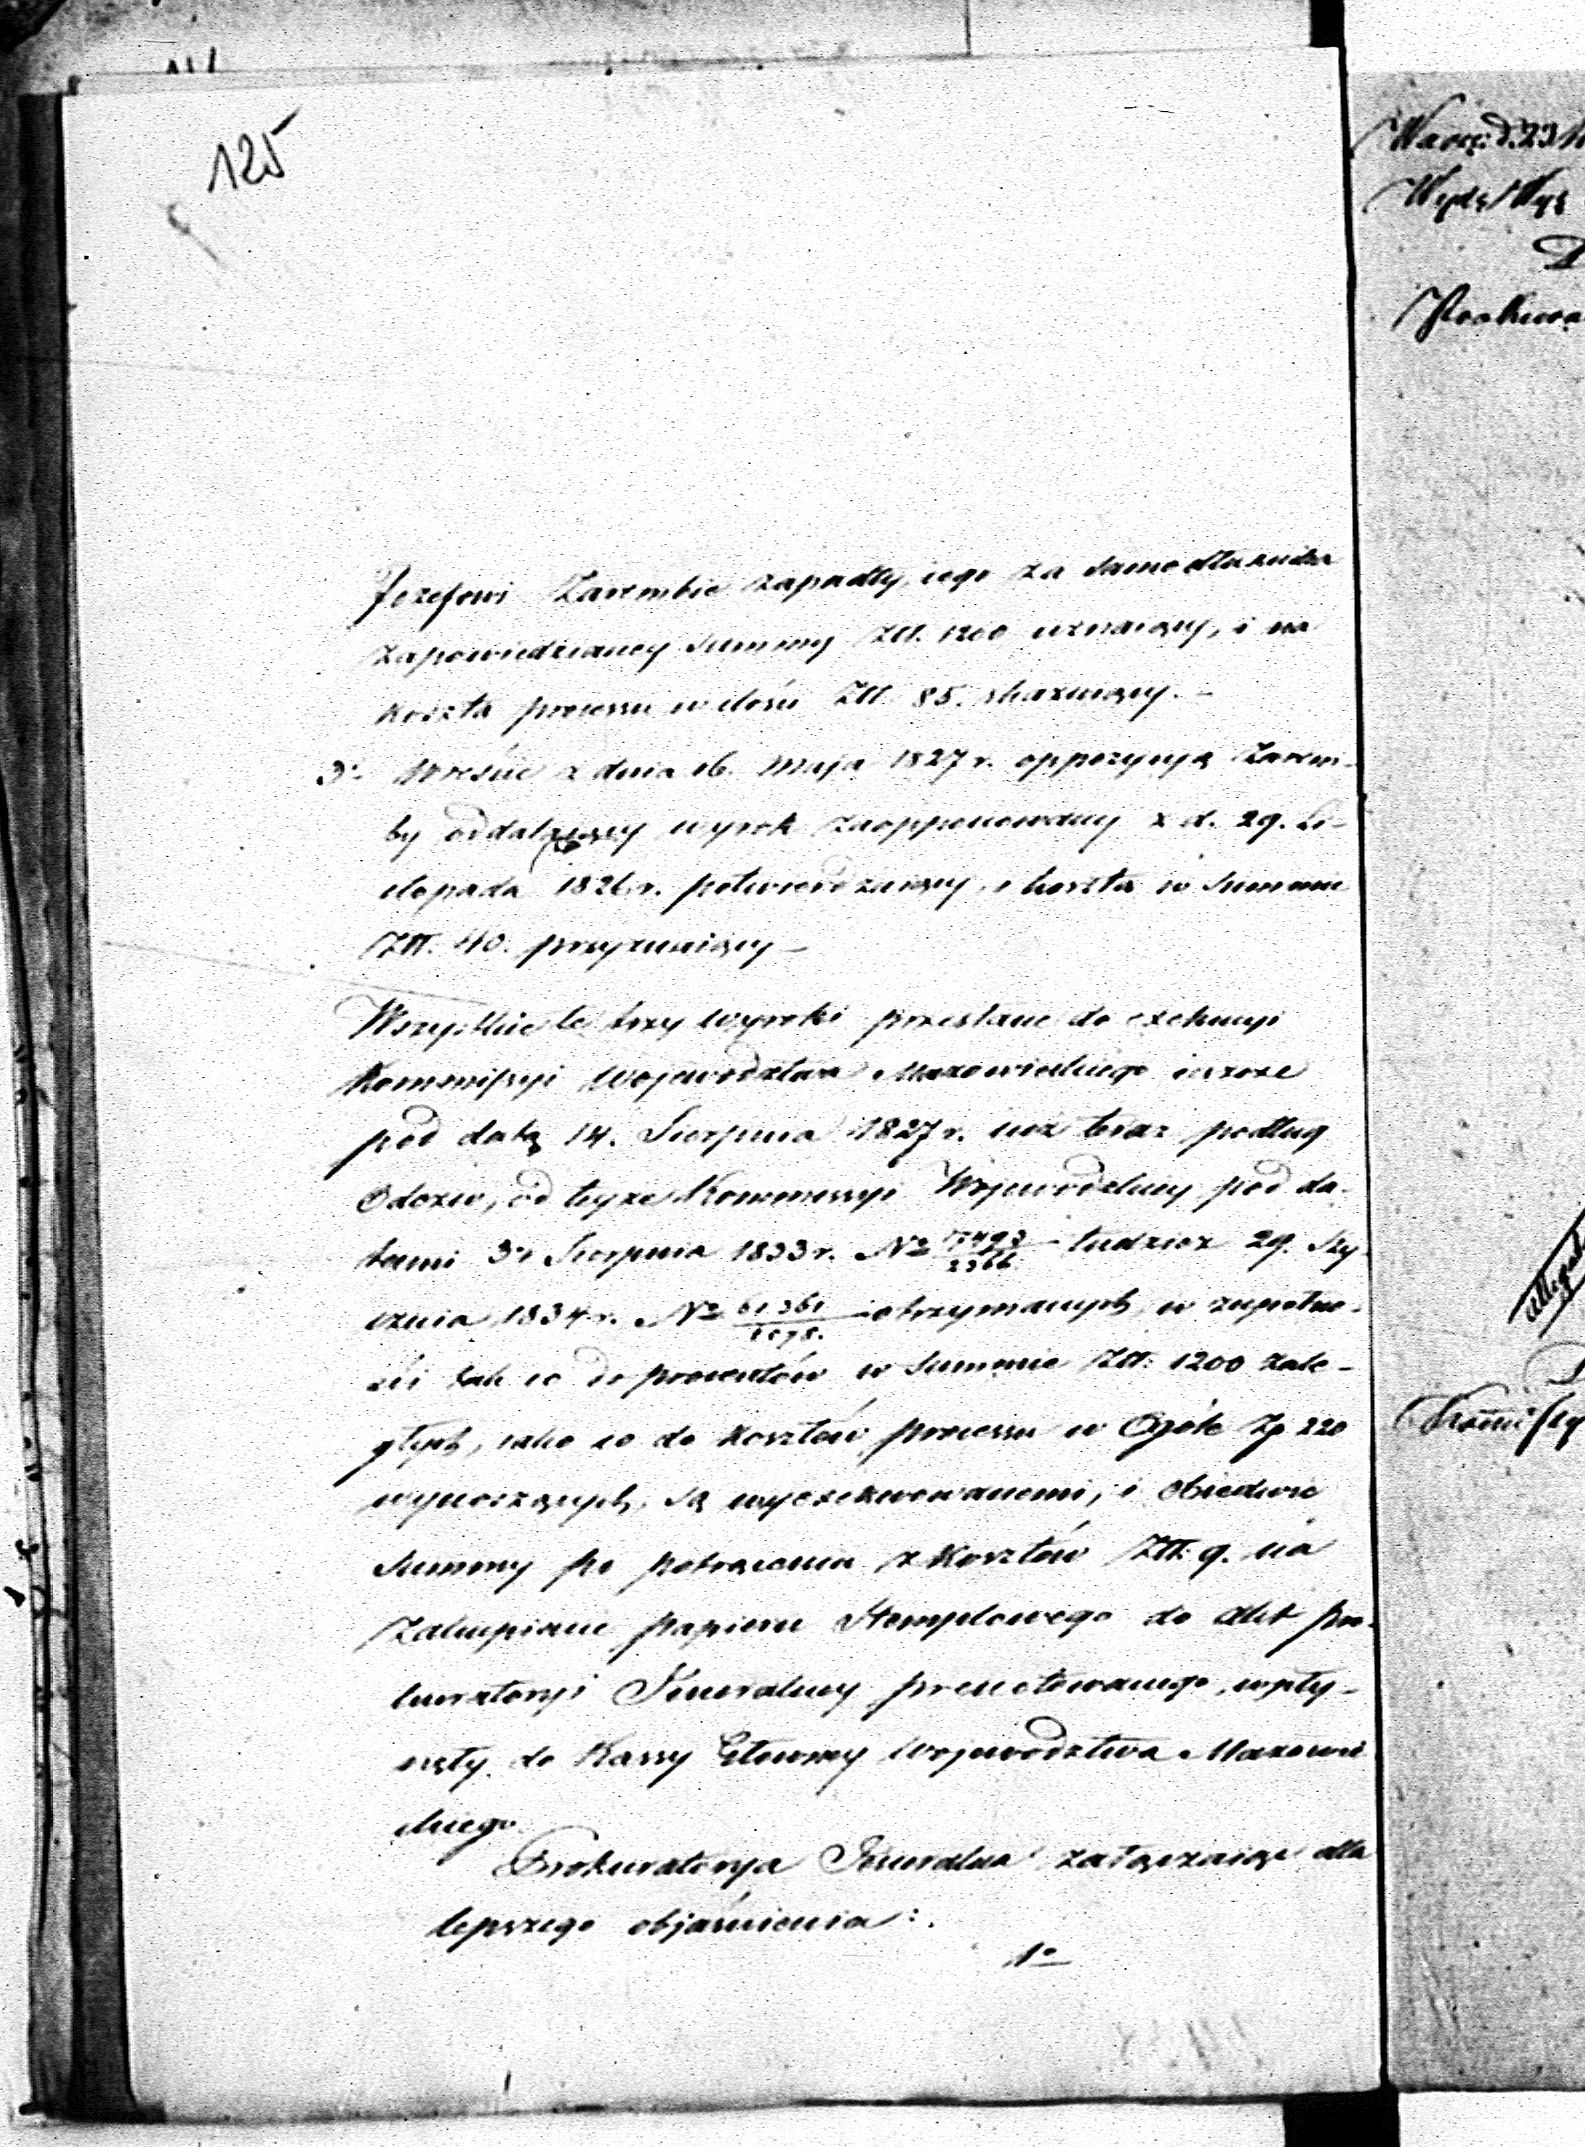 125
Jozefowi Zarembie zapadły, iego za samodłużnika
zapowiedzianey Summy Złt. 1200 uznaiący, i na
koszta processu w ilości Złt. 85. skazuiący. -
3° Wreście z dnia 16. Maja 1827 r. oppozycyą Zarem-
by oddalaiący wyrok zaopponowany z d. 29. Li-
stopada 1826 r. potwierdzaiący, i koszta w Summie
Złt. 40. przyznaiący -
Wszystkie te trzy wyroki przesłane do exekucyi
Kommissyi Województwa Mazowieckiego ieszcze
pod datą 14. Sierpnia 1827 r. iuż teraz podług
Odezw, od teyże Kommissyi Wojewódzkiey pod da-
tami 3° Sierpnia 1833 r. No 17493/2366 tudzież 29. Sty-
cznia 1834 r. No 61361/1078. otrzymanych, w zupełno-
ści tak co do procentów w Summie Złt. 1200 zale-
głych, iako co do kosztów processu w Ogóle Zp 220
wynoszących, są wyexekwowanemi, i obiedwie
Summy po potrąceniu z kosztów Złt. 9. na
zakupienie papieru Stemplowego do Akt Pro-
kuratoryi Jeneralney prenotowanego, wpły-
nęły do Kassy Głowney Województwa Mazowie
ckiego.
Prokuratorya Jeneralna załączaiąc dla
lepszego objaśnienia:
1°
Warsz: d. 23
Wydz
Kommissy